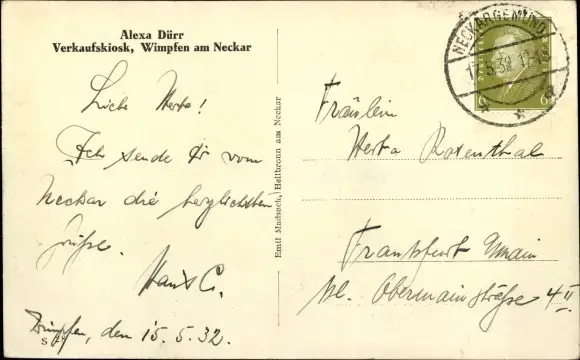 Alexa Dürr
Verkaufskiosk, Wimpfen am Neckar
Liebe Herta!
Ich sende Dir vom
Neckar die herzlichsten
Grüße.
Hans C.
Wimpfen, den 15. 5. 32.
S
Emil Madsack, Heilbronn am Neckar
NECKARGEMÜND
5.32
6 6
Fräulein
Herta Rosenthal
Frankfurt Main
Obermainstraße 4 II